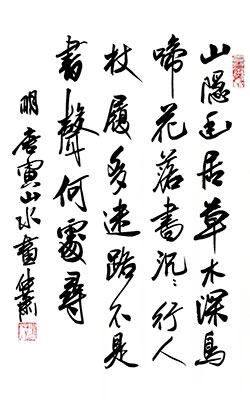 山隱幽居草木深鳥
啼花落晝沉〻行人
杖履多迷路不是
書聲何處尋
明唐寅山水畫